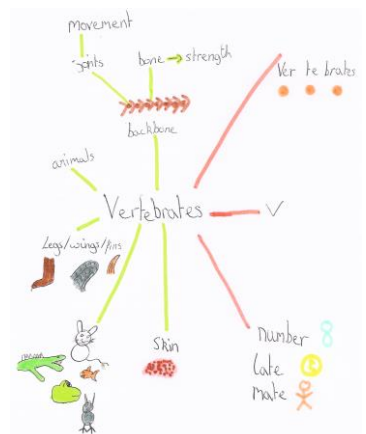 movement
joints
bone → strength
Ver te brates
backbone
animals
Vertebrates
V
Legs/wings/fins
Skin
number
late
mate